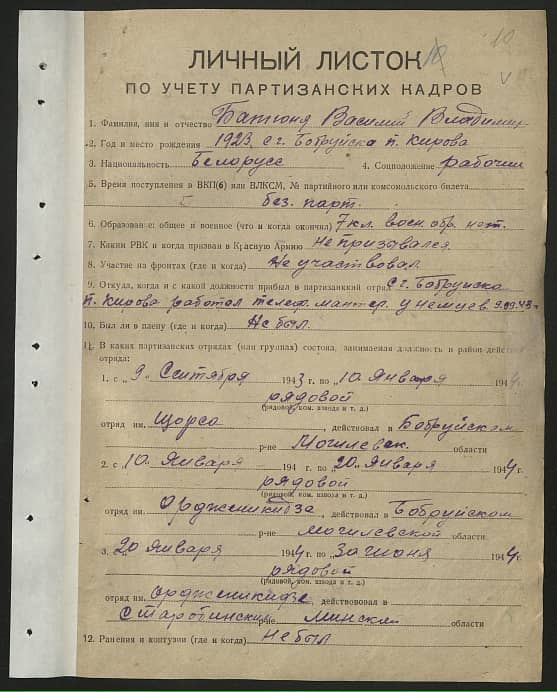 10
ЛИЧНЫЙ ЛИСТОК
ПО УЧЕТУ ПАРТИЗАНСКИХ КАДРОВ
1. Фамилия, имя и отчество Василий Владимир
2. Год и место рождения 1923, с г. Бобруйска п. Кирова
3. Национальность Белорусс 4. Соцположение рабочий
5. Время поступления в ВКП(б) или ВЛКСМ, № партийного или комсомольского билета
без. парт.
6. Образование: общее и военное (что и когда окончил) 7 кл. воен. обр. нет.
7. Каким РВК и когда призван в Красную Армию не призывался
8. Участие на фронтах (где и когда) Не участвовал
9. Откуда, когда и с какой должности прибыл в партизанский отряд с г. Бобруйска
п. Кирова работал телеф. мантер. у немцев.
10. Был ли в плену (где и когда) Не был.
11. В каких партизанских отрядах (или группах) состоял, занимаемая должность и район действия
отряда:
1. с „9„ Сентября 1943 г. по „10„ Января 1944.
рядовой
(рядовой, ком. взвода и т. д.)
отряд им. Щорса, действовал в Бобруйском
р-не Могилевск. области
2. с „10„ Января 194 г. по „20„ Января 1944 г.
рядовой
(рядовой, ком. взвода и т. д.)
отряд им. Орджоникидза, действовал в Бобруйском
р-не Могилевской области.
3. „20 Января 1944 г. по „30 июня 1944 г.
рядовой
(рядовой, ком. взвода и т. д.)
отряд им. Орджоникидзе, действовал в
Старобинский р-не Минской области
12. Ранения и контузии (где и когда) не был